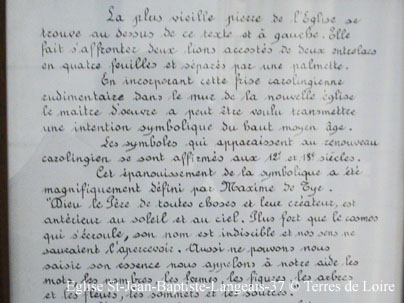 La plus vieille pierre de l'Eglise se
trouve au dessus de ce texte et à gauche. Elle
fait s'affronter deux lions accostés de deux entrelacs
en quatre feuilles et séparés par une palmette.
En incorporant cette frise carolingienne
rudimentaire dans le mur de la nouvelle église
le maître d'oeuvre a peut être voulu transmettre
une intention symbolique du haut moyen âge.
Les symboles qui apparaissent au renouveau
carolingien se sont affirmés aux 12e et 13e siècles.
Cet épanouissement de la symbolique a été
magnifiquement défini par Maxime de Tye.
"Dieu le Père de toutes choses et leur créateur, est
antérieur au soleil et au ciel. Plus fort que le cosmos
qui s'écroule, son nom est indiscible et nos sens ne
sauraient l'apercevoir. Aussi ne pouvons nous
saisir son essence nous appelons à notre aide les
mots, les nombres, les formes, les figures, les arbres
et les fleurs, les sommets et les sources.
Eglise St-Jean-Baptiste-Langeais-37 © Terres de Loire